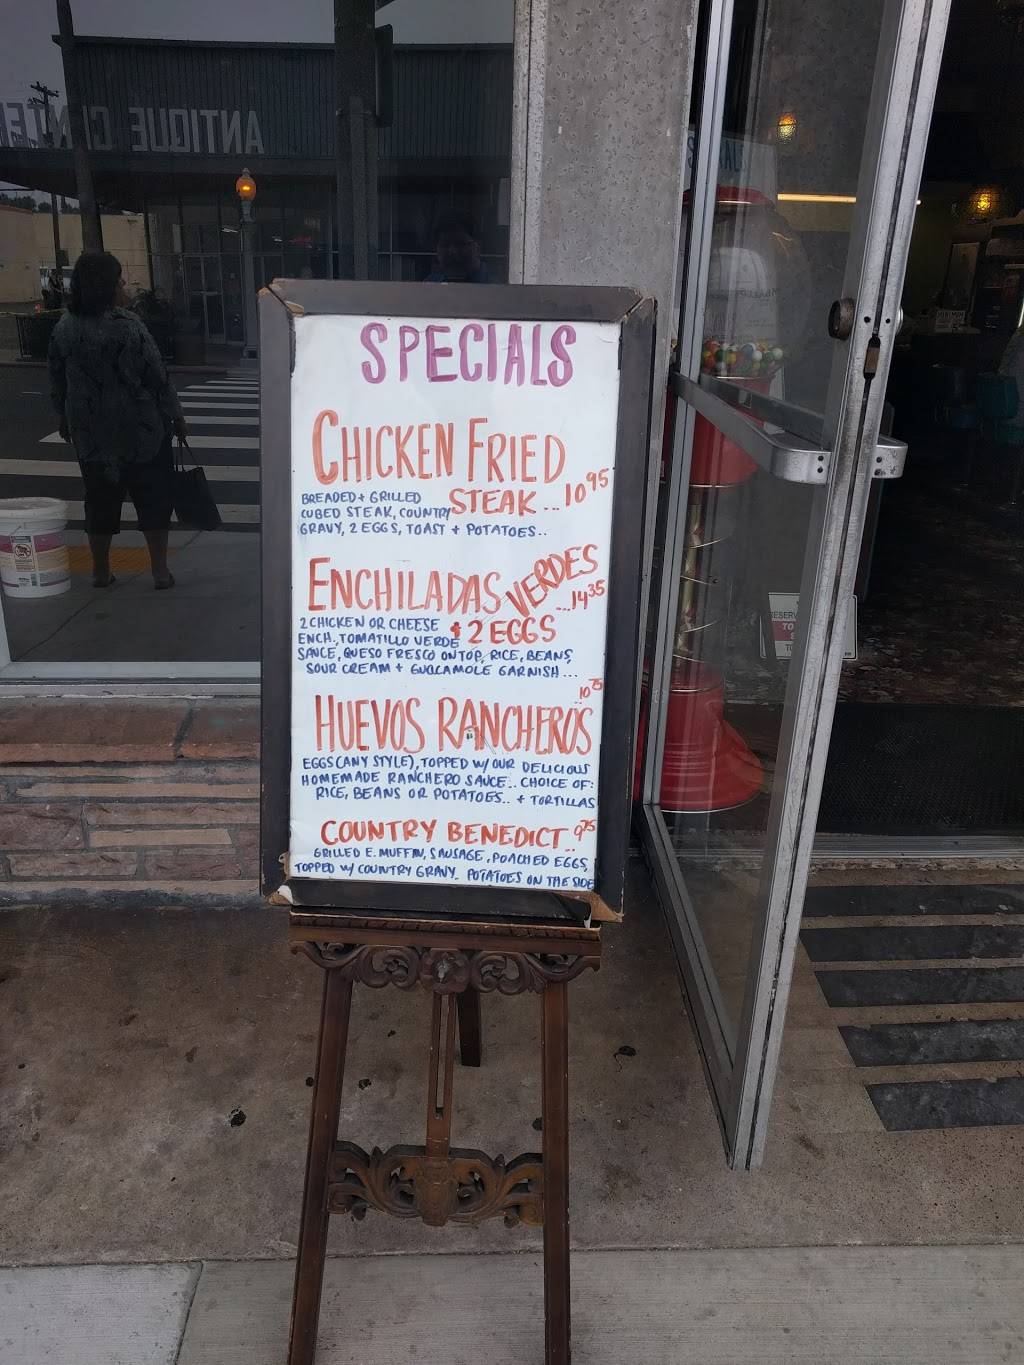 ANTIQUE CENTE
SPECIALS
CHICKEN FRIED
STEAK ... 10 95
BREADED + GRILLED
CUBED STEAK, COUNTRY
GRAVY, 2 EGGS, TOAST + POTATOES..
ENCHILADAS VERDES
...14 35
+ 2 EGGS
2 CHICKEN OR CHEESE
ENCH. TOMATILLO VERDE
SAUCE, QUESO FRESCO ON TOP, RICE, BEANS,
SOUR CREAM + GUACAMOLE GARNISH ...
10 75
HUEVOS RANCHEROS
EGGS (ANY STYLE), TOPPED W/ OUR DELICIOUS
HOMEMADE RANCHERO SAUCE.. CHOICE OF:
RICE, BEANS OR POTATOES.. + TORTILLAS
COUNTRY BENEDICT.. 9 75
GRILLED E. MUFFIN, SAUSAGE, POACHED EGGS,
TOPPED W/ COUNTRY GRAVY. POTATOES ON THE SIDE
RESERV
TO